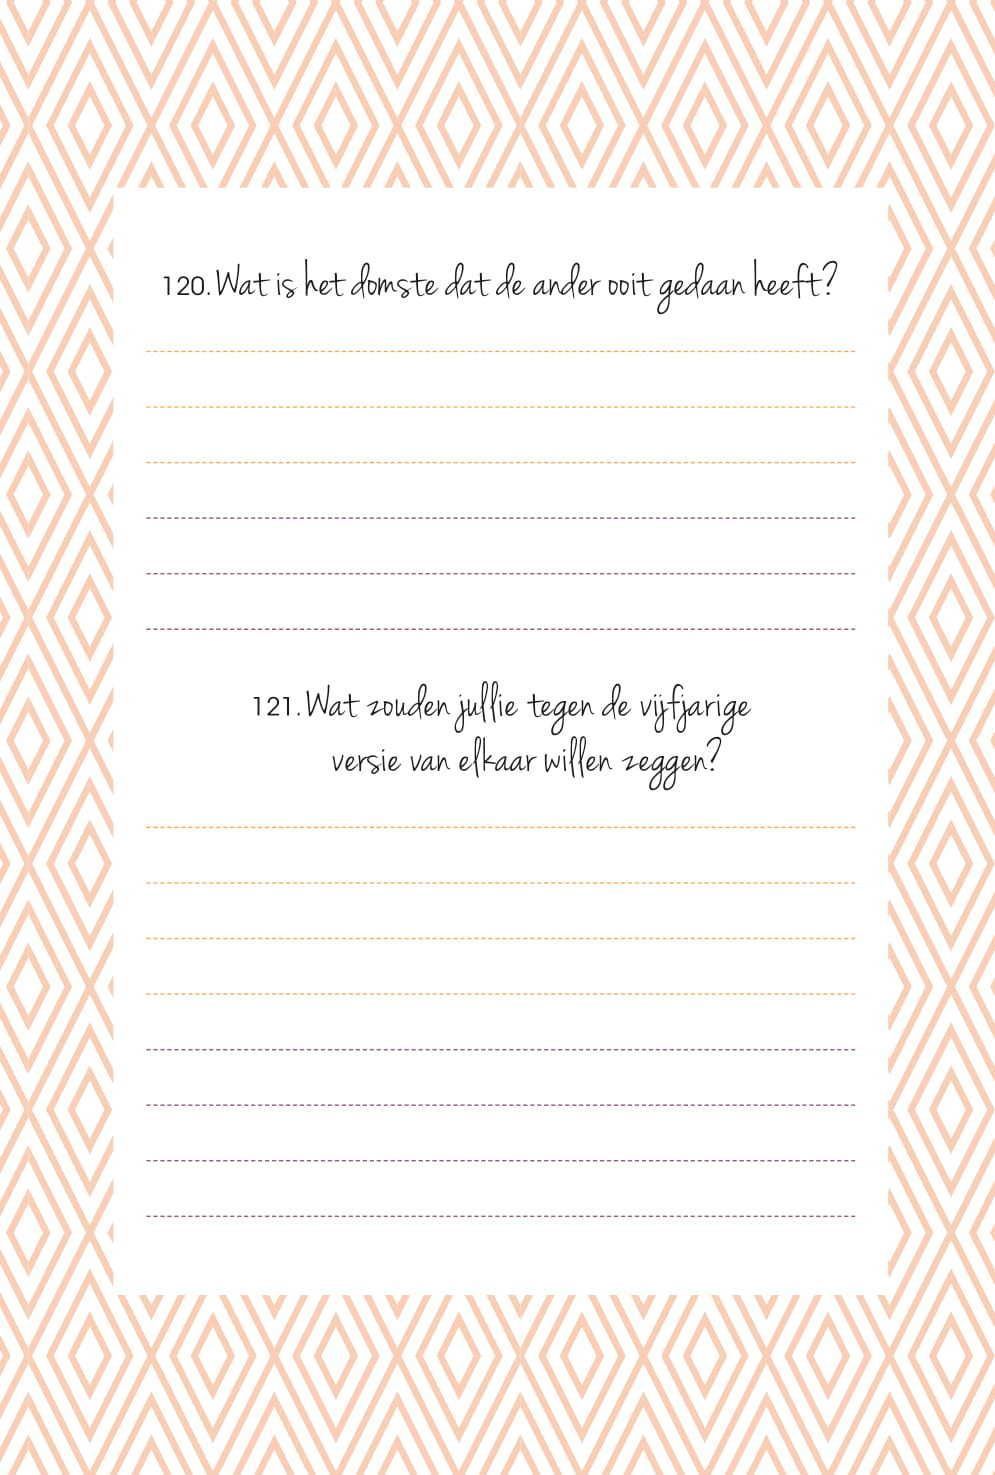 120. Wat is het domste dat de ander ooit gedaan heeft?
121. Wat zouden jullie tegen de vijfjarige
versie van elkaar willen zeggen?